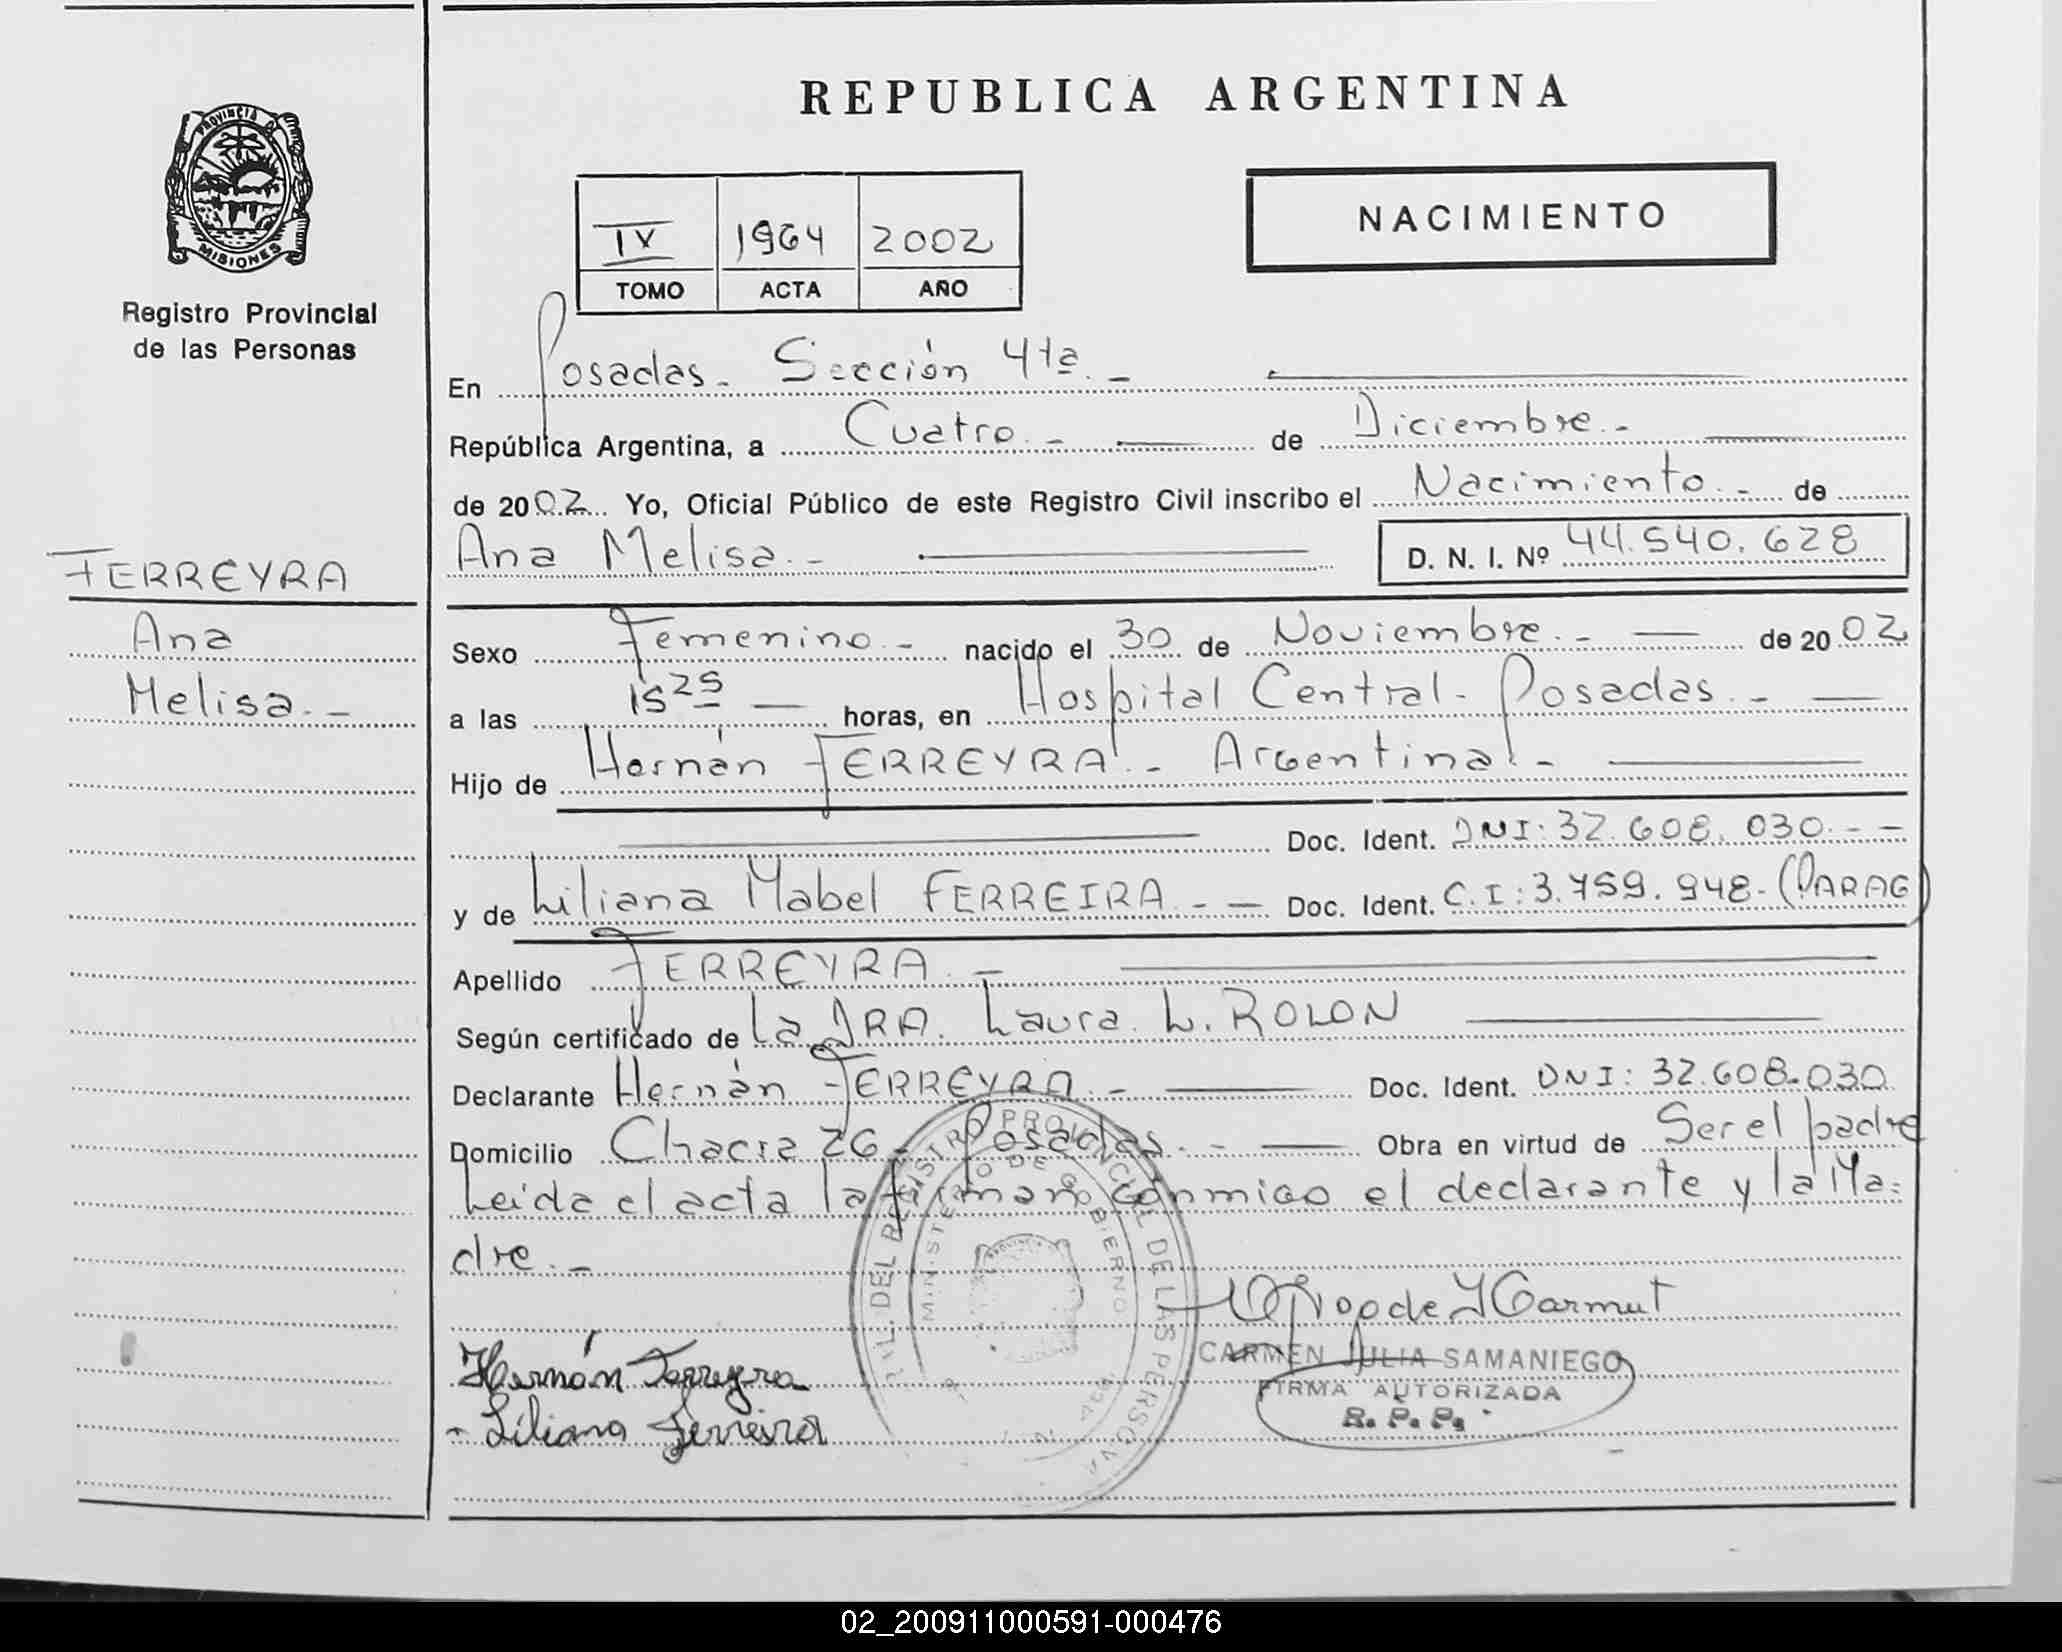 REPUBLICA ARGENTINA
PROVINCIA DE
MISIONES
Registro Provincial
de las Personas
NACIMIENTO
IV 1964 2002
TOMO ACTA AÑO
En Posadas.- Sección 4ta.-
República Argentina, a Cuatro.- de Diciembre.-
de 2002. Yo, Oficial Público de este Registro Civil inscribo el Nacimiento.- de
Ana Melisa.- D. N. I. Nº 44.540.628
FERREYRA
Ana
Melisa.-
Sexo Femenino.- nacido el 30 de Noviembre.- de 2002
a las 15 25 horas, en Hospital Central- Posadas.-
Hijo de Hernán FERREYRA.- Argentina.-
Doc. Ident. DNI: 32.608.030.--
y de Liliana Mabel FERREIRA.-- Doc. Ident. C.I: 3.759.948-(PARAG)
Apellido FERREYRA.-
Según certificado de La DRA. Laura L. ROLON
Declarante Hernán FERREYRA.- Doc. Ident. DNI: 32.608.030
Domicilio Chacra 26- Posadas.- Obra en virtud de Ser el padre
Leida el acta la firman conmigo el declarante y la Ma=
dre.-
REGISTRO PROVINCIAL DE LAS PERSONAS
MINISTERIO DE GOBIERNO
Hernán Ferreyra
- Liliana Ferreira
CARMEN JULIA SAMANIEGO
FIRMA AUTORIZADA
R. P. P.
02_200911000591-000476